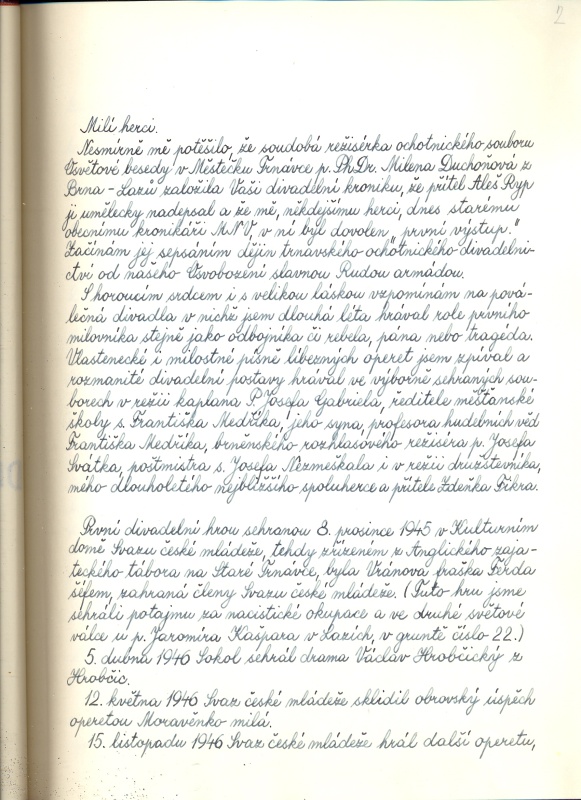 2
Milí herci.
Nesmírně mě potěšilo, že soudobá režisérka ochotnického souboru
Osvětové besedy v Městečku Trnávce p. PhDr. Milena Duchoňová z
Brna - Lazů založila Vaši divadelní kroniku, že přítel Aleš Ryp
ji umělecky nadepsal a že mě, někdejšímu herci, dnes starému
obecnímu kronikáři MNV, v ní byl dovolen „první výstup."
Začínám jej sepsáním dějin trnavského ochotnického divadelni-
ctví od našeho Osvobození slavnou Rudou armádou.
S horoucím srdcem i s velikou láskou vzpomínám na pová-
lečná divadla v nichž jsem dlouhá léta hrával role prvního
milovníka stejně jako odbojníka či rebela, pána nebo tragéda.
Vlastenecké i milostné písně líbezných operet jsem zpíval a
rozmanité divadelní postavy hrával ve výborně sehraných sou-
borech v režii kaplana P. Josefa Gabriela, ředitele měšťanské
školy s. Františka Medříka, jeho syna, profesora hudebních věd
Františka Medříka, brněnského rozhlasového režiséra p. Josefa
Svátka, poštmistra s. Josefa Nezmeškala i v režii družstevníka,
mého dlouholetého nejbližšího spoluherce a přítele Zdeňka Fikra.
První divadelní hrou sehranou 8. prosince 1945 v Kulturním
domě Svazu české mládeže, tehdy zřízeném z Anglického zaja-
teckého tábora na Staré Trnávce, byla Vránova fraška Ferda
šéfem, zahraná členy Svazu české mládeže. (Tuto hru jsme
sehráli potajmu za nacistické okupace a ve druhé světové
válce u p. Jaromíra Kašpara v Lazích, v gruntě číslo 22.)
5. dubna 1946 Sokol sehrál drama Václav Hrobčický z
Hrobčic.
12. května 1946 Svaz české mládeže sklidil obrovský úspěch
operetou Moravěnko milá.
15. listopadu 1946 Svaz české mládeže hrál další operetu,